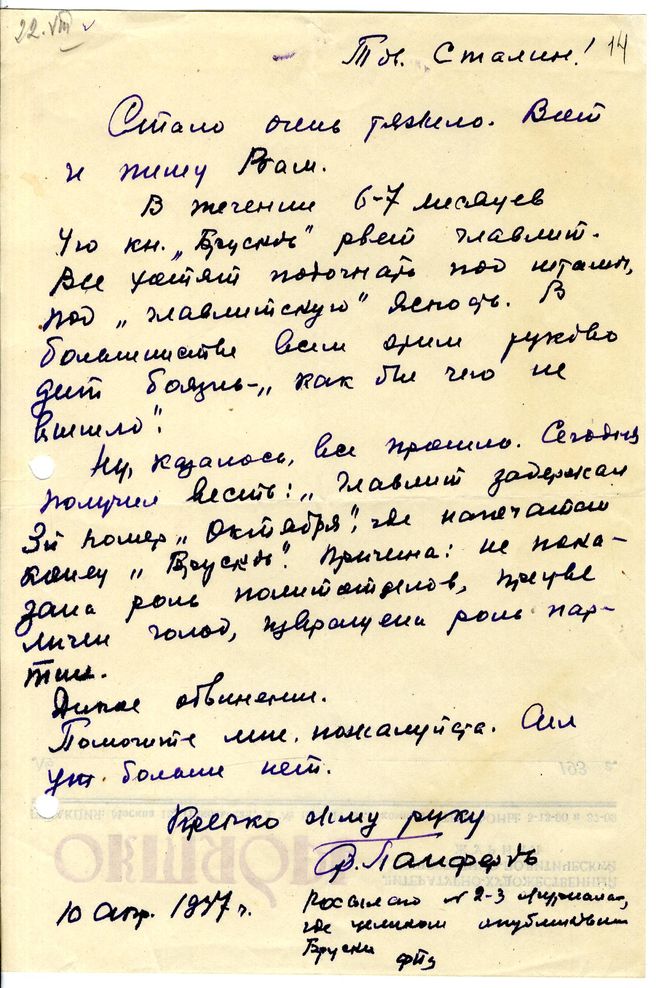 22.VIII
14
Тов. Сталин!
Стало очень тяжело. Вот
и пишу Вам.
В течении 6-7 месяцев
4ую кн. „Брусков" рвет главлит.
Все хотят подогнать под штамп,
под „главлитскую" ясность. В
большинстве всем этим руково
дит боязнь – „как бы чего не
вышло".
Ну, казалось, все прошло. Сегодня
получил весть: „главлит задержал
3й номер „Октября", где напечатан
конец „Брусков". Причина: не пока-
зана роль политотделов, преуве
личен голод, извращена роль пар-
тии.
Дикое обвинение.
Помогите мне, пожалуйста. Сил
уж больше нет.
Крепко жму руку
Ф. Панферов
10 апр. 1937 г.
Посылаю № 2-3 журнала,
где целиком опубликованы
Бруски
ФП
№
193 г.
РЕДАКЦИЯ: Москва
ОКТЯБРЬ
ЖУРНАЛ
ЛИТЕРАТУРНО-ХУДОЖЕСТВЕННЫЙ